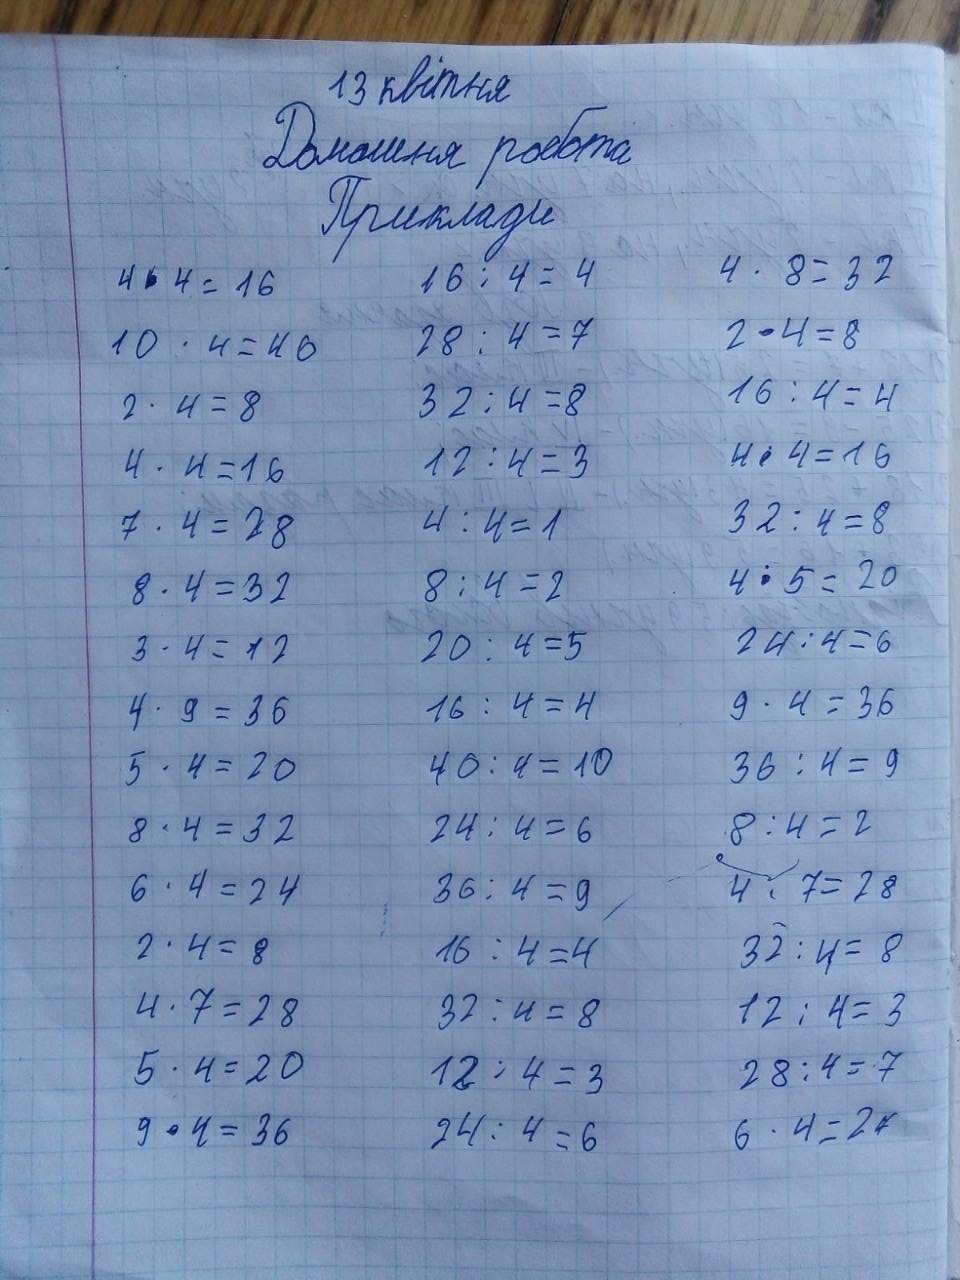 13 квітня
Домашня робота
Приклади
4 · 4 = 16 16 : 4 = 4 4 · 8 = 32
10 · 4 = 40 28 : 4 = 7 2 · 4 = 8
2 · 4 = 8 32 : 4 = 8 16 : 4 = 4
4 · 4 = 16 12 : 4 = 3 4 · 4 = 16
7 · 4 = 28 4 : 4 = 1 32 : 4 = 8
8 · 4 = 32 8 : 4 = 2 4 · 5 = 20
3 · 4 = 12 20 : 4 = 5 24 : 4 = 6
4 · 9 = 36 16 : 4 = 4 9 · 4 = 36
5 · 4 = 20 40 : 4 = 10 36 : 4 = 9
8 · 4 = 32 24 : 4 = 6 8 : 4 = 2
6 · 4 = 24 36 : 4 = 9 4 · 7 = 28
2 · 4 = 8 16 : 4 = 4 32 : 4 = 8
4 · 7 = 28 32 : 4 = 8 12 : 4 = 3
5 · 4 = 20 12 : 4 = 3 28 : 4 = 7
9 · 4 = 36 24 : 4 = 6 6 · 4 = 24